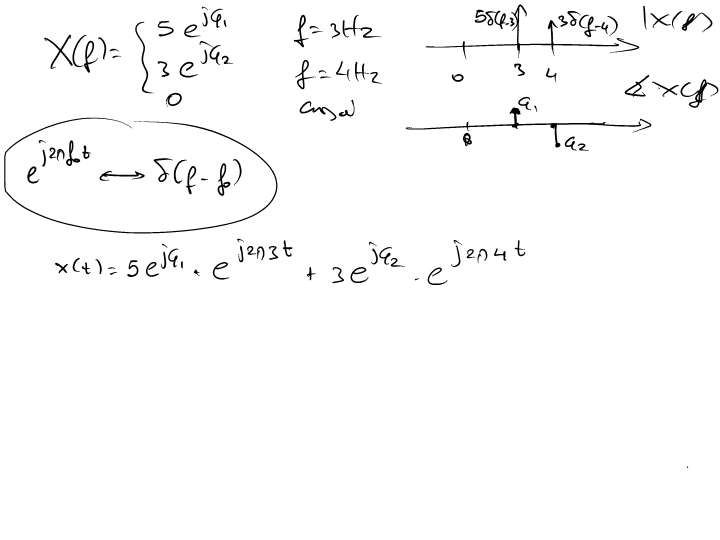 X(f) = { 5 e^{jφ₁} f = 3Hz
3 e^{jφ₂} f = 4Hz
0
5δ(f-3) 3δ(f-4) |X(f)|
0 3 4
∡X(f)
φ₁
0 φ₂
e^{j2πf₀t} ⟷ δ(f - f₀)
x(t) = 5 e^{jφ₁} · e^{j2π3t} + 3 e^{jφ₂} · e^{j2π4t}